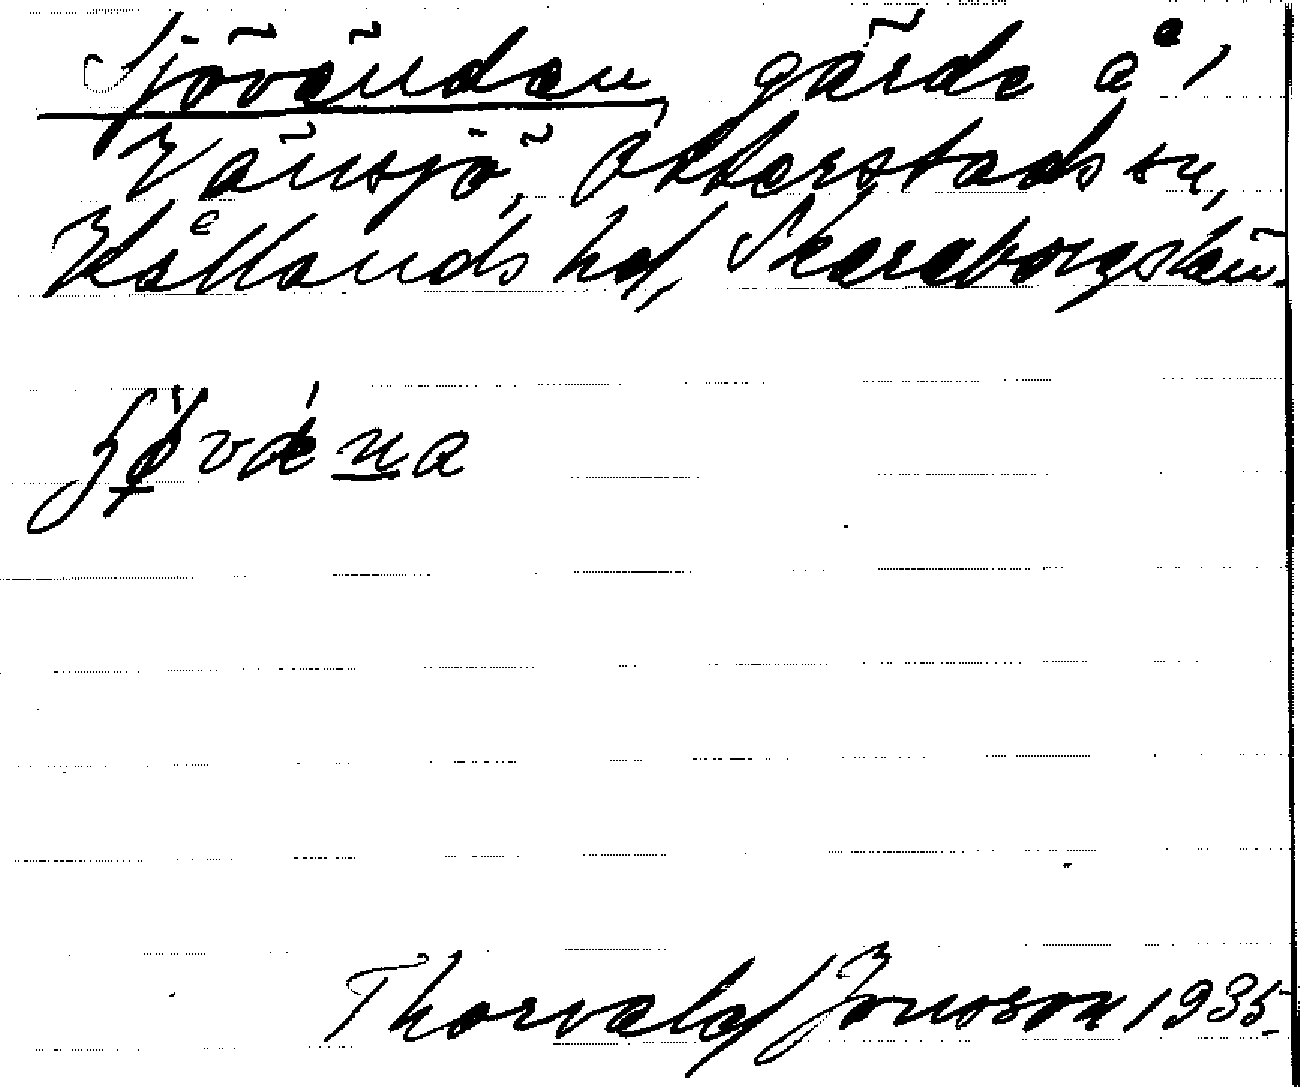 Sjövänden, gärde å 1
Vänsjö, Otterstads sn,
Kållands hd, Skaraborgs län.
Thorvald Jonsson 1935